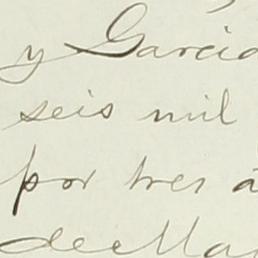 y Garcia
seis mil
por tres a
de